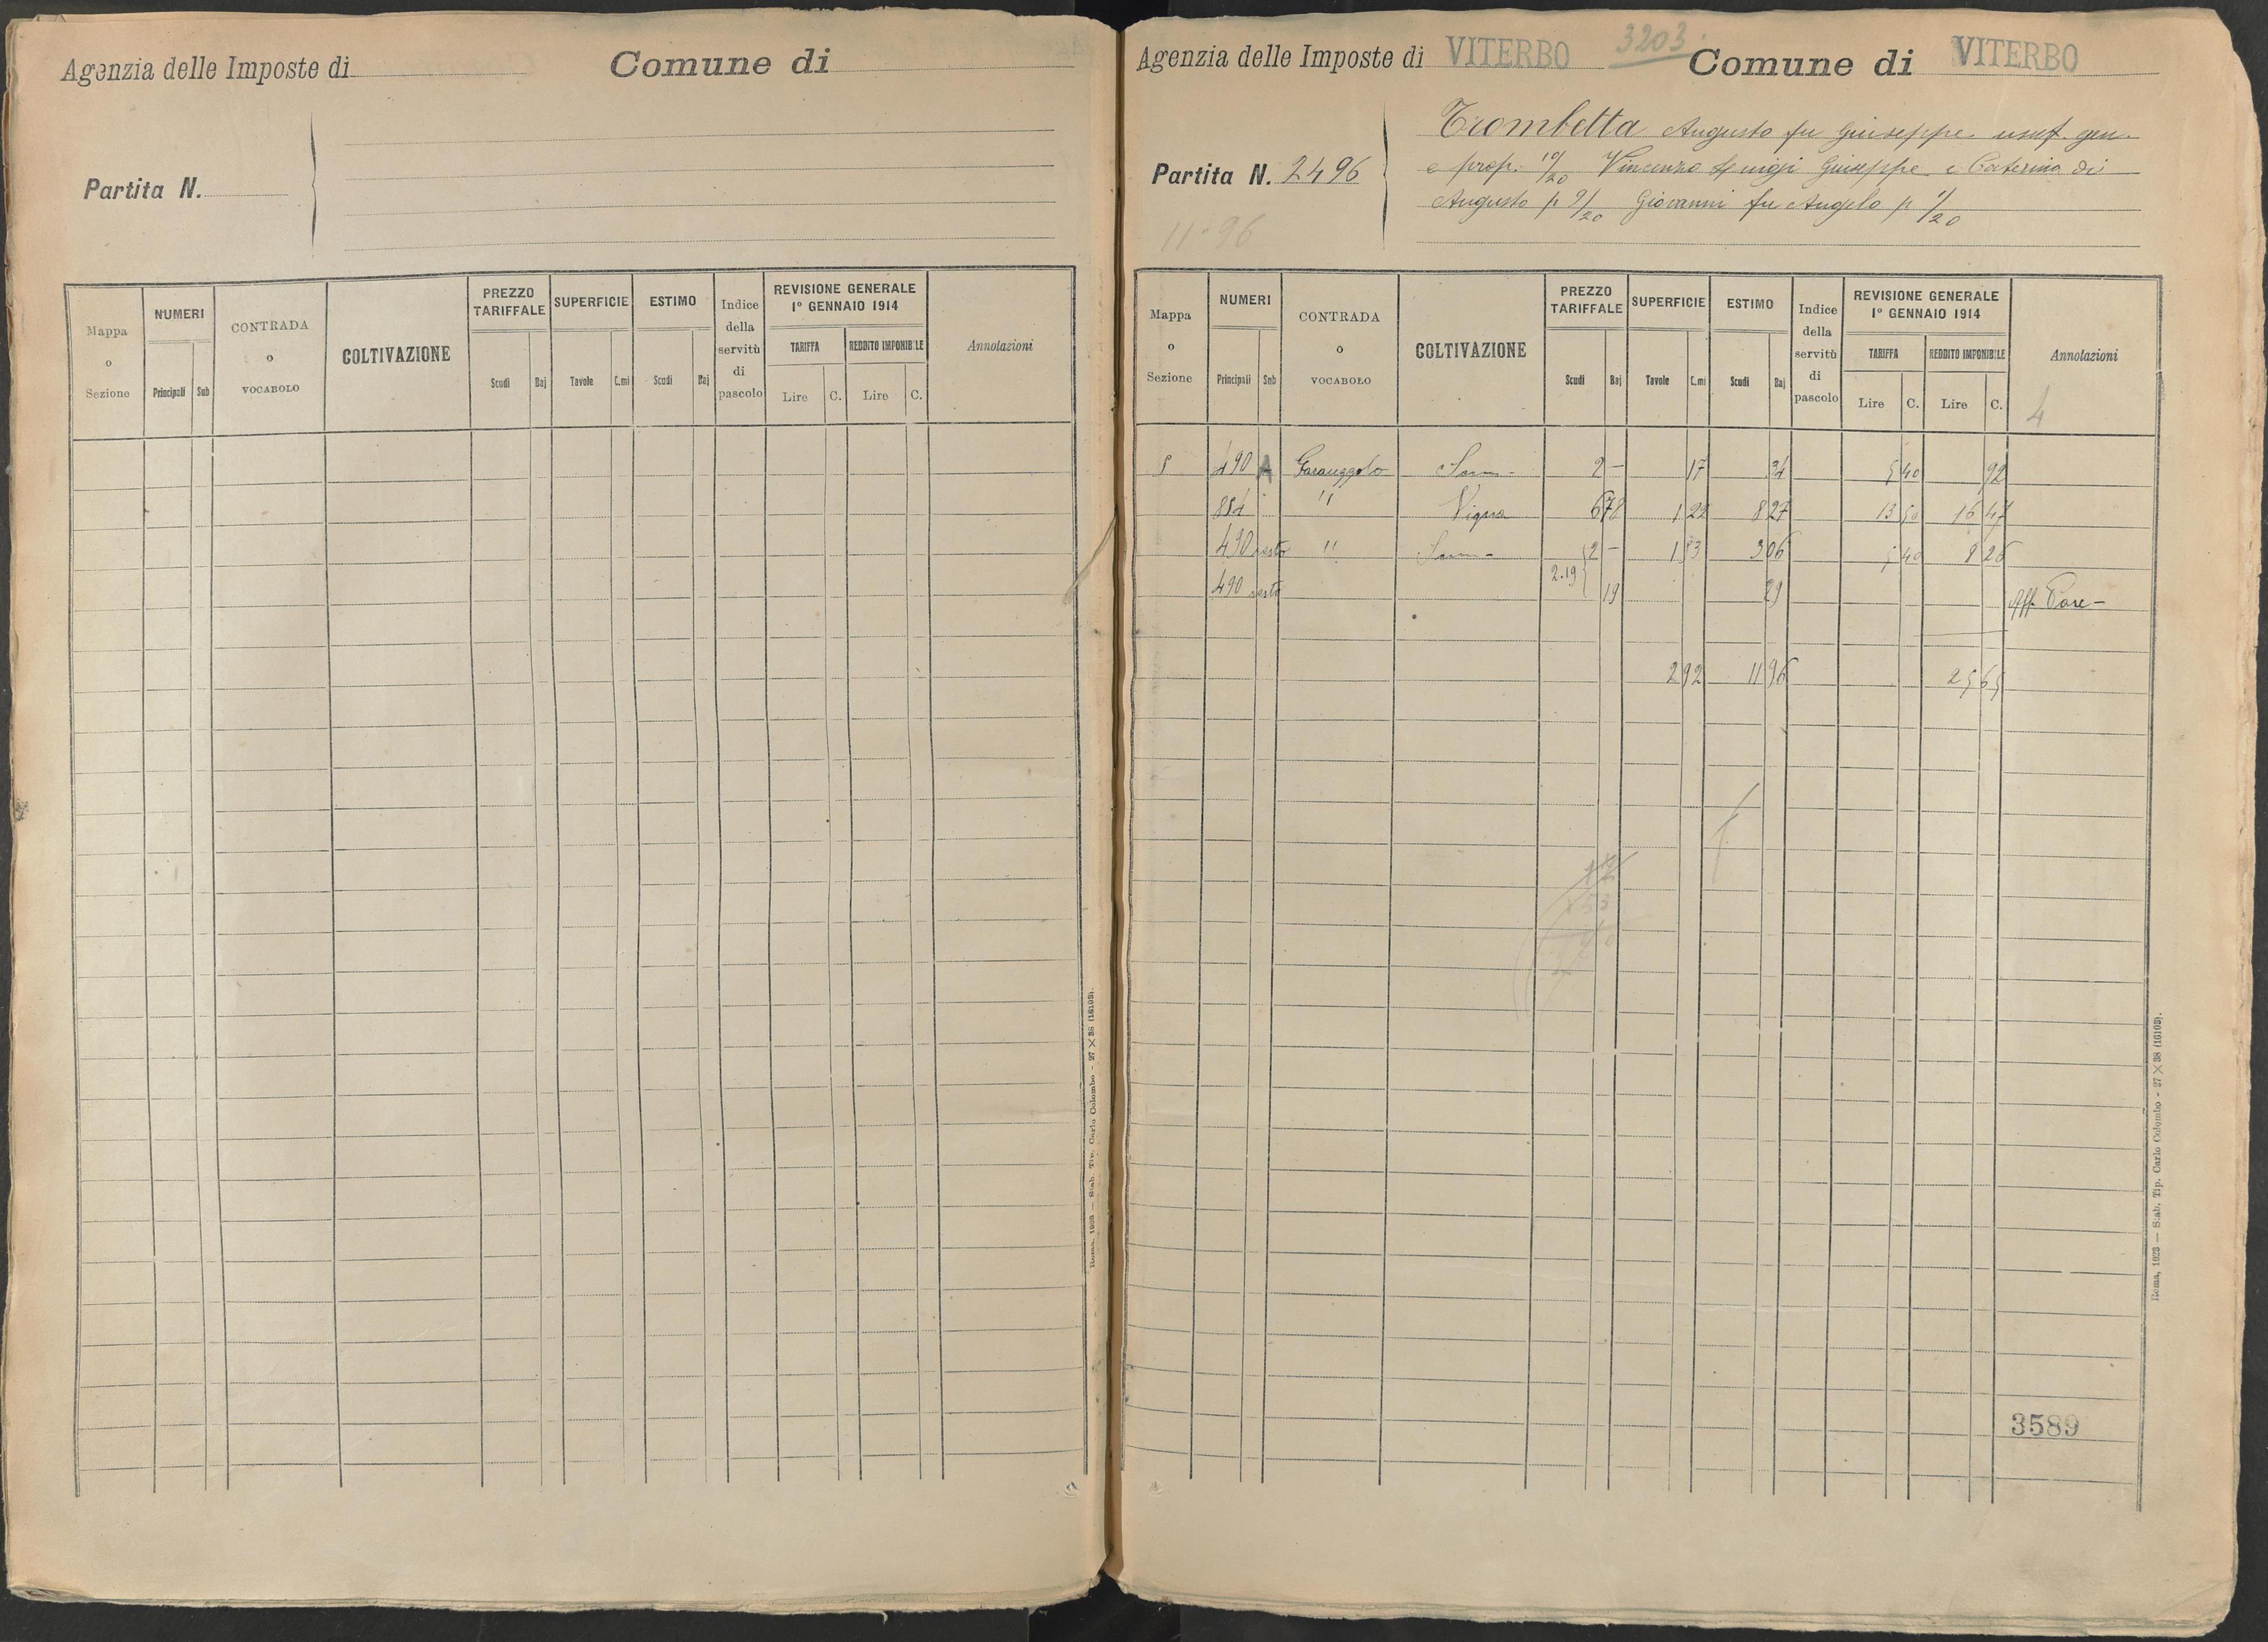 Agenzia delle Imposte di
Comune di
Partita N.
Mappa o Sezione
NUMERI
Principali Sub
CONTRADA o VOCABOLO
COLTIVAZIONE
PREZZO TARIFFALE
Scudi Baj
SUPERFICIE
Tavole C.mi
ESTIMO
Scudi Baj
Indice della servitù di pascolo
REVISIONE GENERALE
1º GENNAIO 1914
TARIFFA
Lire C.
REDDITO IMPONIBILE
Lire C.
Annotazioni
Roma, 1923 — Stab. Tip. Carlo Colombo - 27 × 38 (16103).
Agenzia delle Imposte di VITERBO 3203. Comune di VITERBO
Trombetta Augusto fu Giuseppe usuf. gen.
e prop. 10/20 Vincenzo Luigi Giuseppe e Caterina di
Augusto p 9/20 Giovanni fu Angelo p 1/20
Partita N. 2496
11.96
Mappa o Sezione
NUMERI
Principali Sub
CONTRADA o VOCABOLO
COLTIVAZIONE
PREZZO TARIFFALE
Scudi Baj
SUPERFICIE
Tavole C.mi
ESTIMO
Scudi Baj
Indice della servitù di pascolo
REVISIONE GENERALE
1º GENNAIO 1914
TARIFFA
Lire C.
REDDITO IMPONIBILE
Lire C.
Annotazioni
4
490 A 2 - 17 34 5 40 92
884 " Vigna 6 78 1 22 8 27 13 50 16 47
490 resto " 2 - 1 53 3 06 5 40 8 26
490 resto 2.19 19 29 Aff.
2 92 11 96 25 65
3589
Roma, 1923 — Stab. Tip. Carlo Colombo - 27 × 38 (16103).